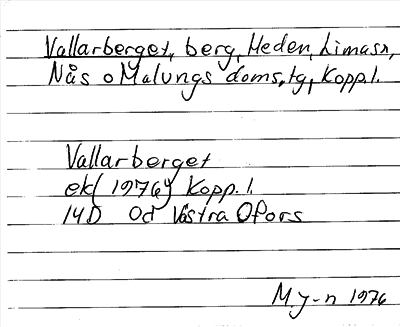 Vallarberget, berg, Heden, Limasn,
Nås o Malungs doms.tg, Kopp.l.
Vallarberget
ek( 1976) Kopp.l.
14D 0d Västra Ofors
M. J-n 1976